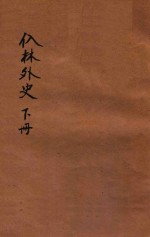 仅林外史 下冊